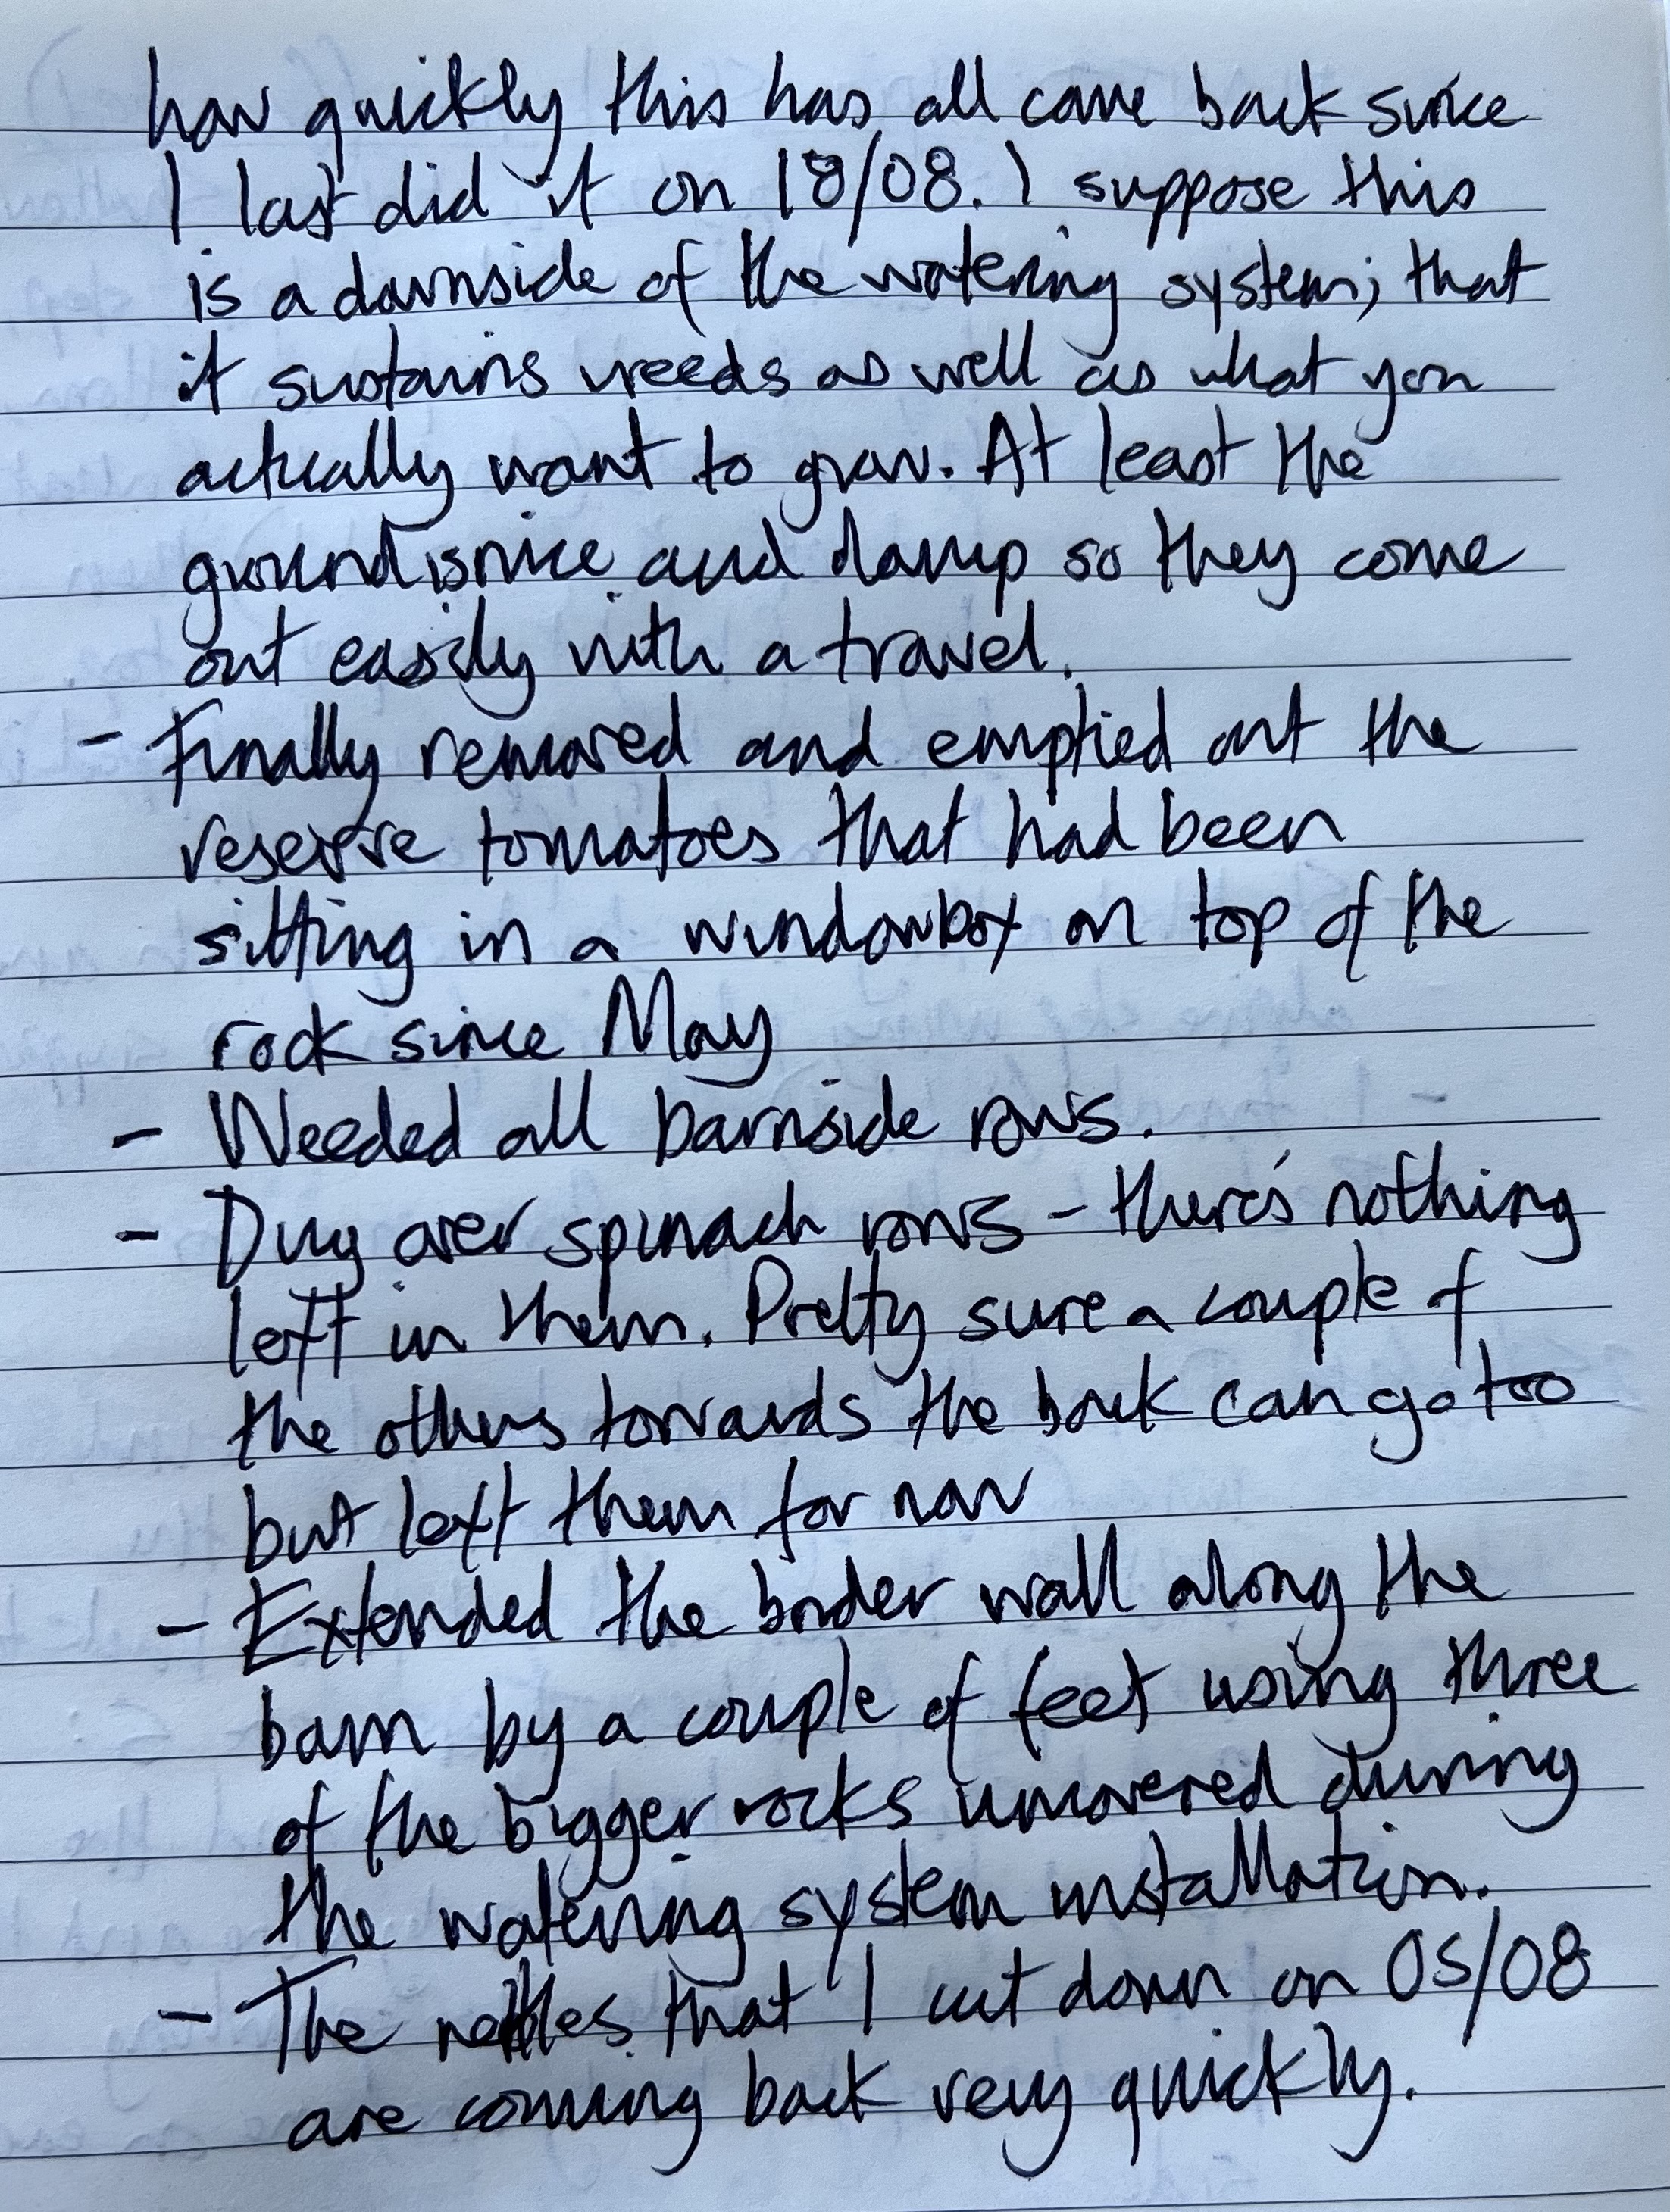 how quickly this has all came back since
I last did it on 18/08. I suppose this
is a downside of the watering system; that
it sustains weeds as well as what you
actually want to grow. At least the
ground is nice and damp so they come
out easily with a trowel.
- Finally removed and emptied out the
reserve tomatoes that had been
sitting in a windowbox on top of the
rock since May
- Weeded all barnside rows.
- Dug over spinach rows - there's nothing
left in them. Pretty sure a couple of
the others towards the back can go too
but left them for now
- Extended the border wall along the
barn by a couple of feet using three
of the bigger rocks uncovered during
the watering system installation.
- The nettles that I cut down on 05/08
are coming back very quickly.